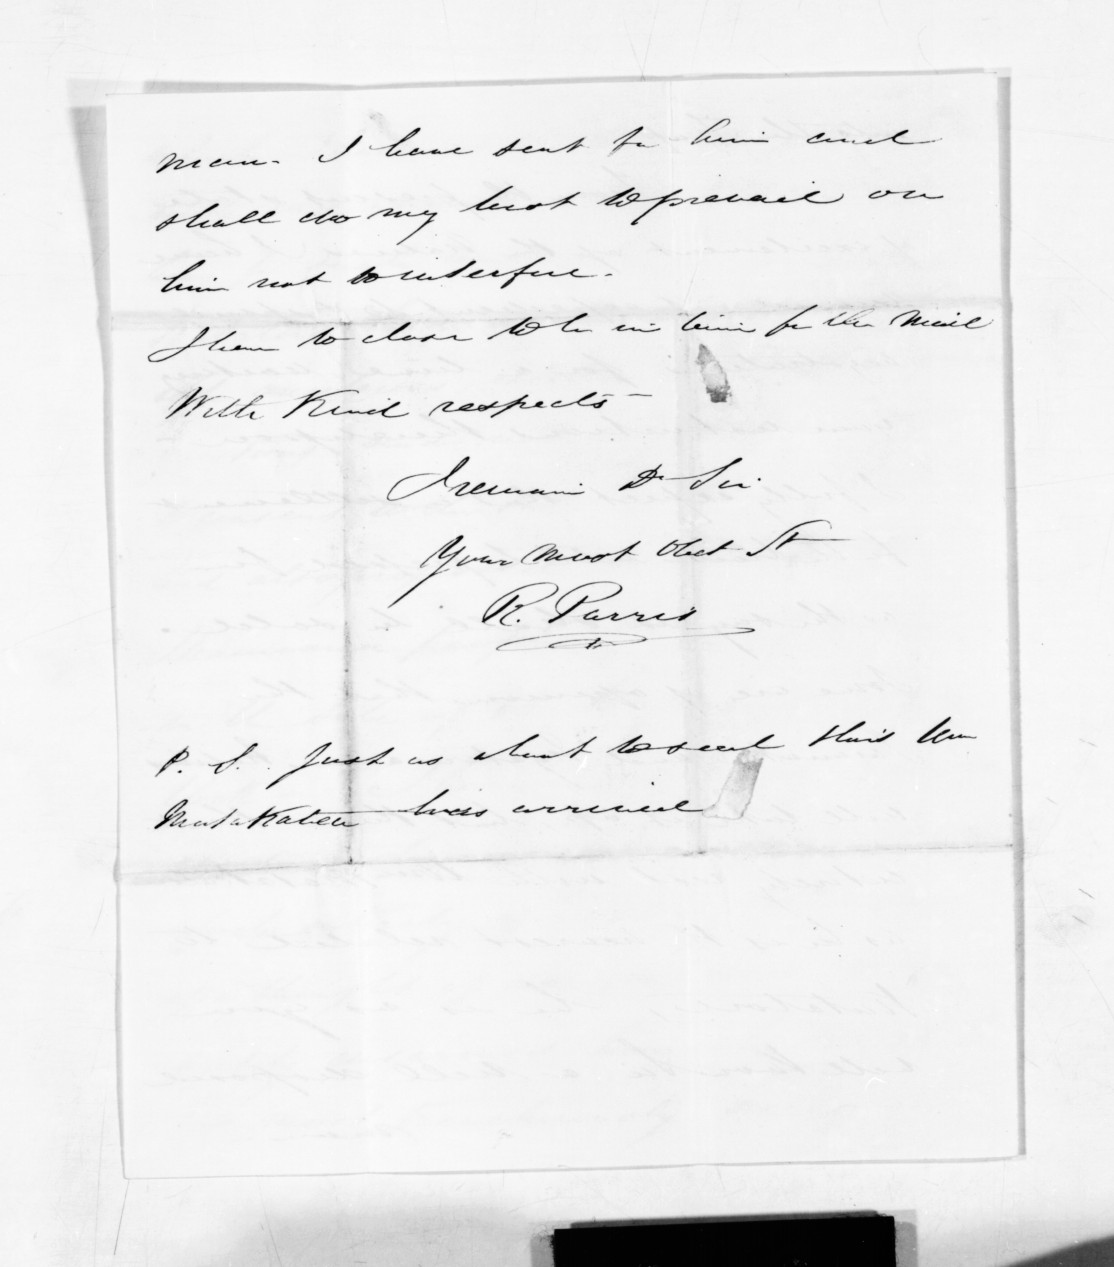 man. I have sent for him and
shall do my best to prevail on
him not to interfere.
I have to close to be in time for the Mail
With Kind respects -
I remain Dr Sir
Your most Obdt St
R. Parris
P. S. Just as about to seal this Wm
Matakatea has arrived